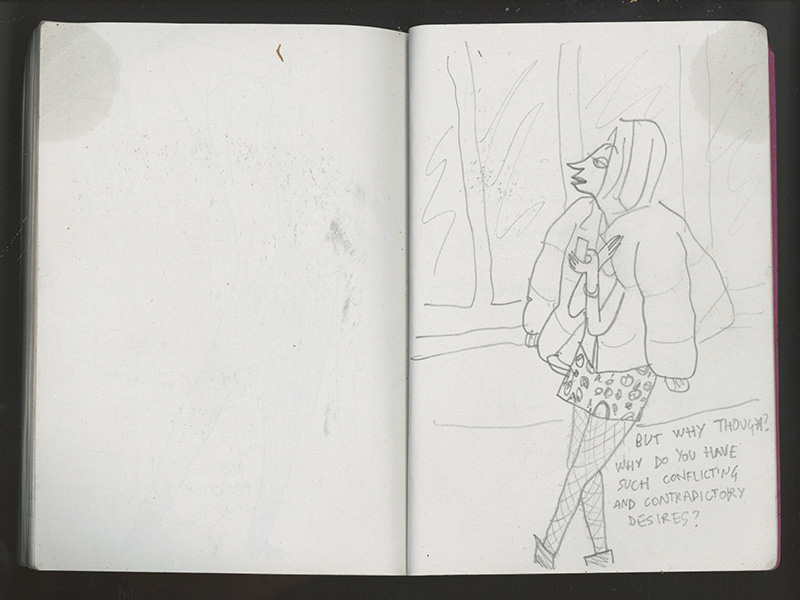 BUT WHY THOUGH?
WHY DO YOU HAVE
SUCH CONFLICTING
AND CONTRADICTORY
DESIRES?